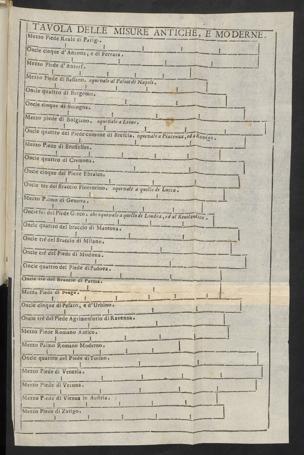 TAVOLA DELLE MISURE ANTICHE, E MODERNE.
Mezzo Piede Reale di Parigi.
Oncie cinque d'Ancona, e di Ferrara.
Mezzo Piede d'Anversa.
Mezzo Piede di Bassano, equivale al Palmo di Napoli.
Oncie quattro di Bergomo.
Oncie cinque di Bologna.
Mezzo piede di Bolgiano, equivale a Leone.
Oncie quattro del Piede comune di Brescia, equivale a Piacenza, ed a Rovigo.
Mezzo Piede di Brusselles.
Oncie quattro di Cremona.
Oncie cinque del Piede Ebraico.
Oncie tre del Braccio Fiorentino, equivale a quello di Lucca.
Mezzo Palmo di Genova.
Oncie sei del Piede Greco, che equivale a quello di Londra, ed al
Oncie quattro del braccio di Mantova.
Oncie tré del Braccio di Milano.
Oncie tré del Piede di Modena.
Oncie quattro del Piede di Padova.
Oncie tré del Braccio di Parma.
Mezzo Piede di Praga.
Oncie cinque di Pesaro, e d'Urbino.
Oncie tré del Piede Agrimensorio di Ravenna.
Mezzo Piede Romano Antico.
Mezzo Palmo Romano Moderno.
Oncie quattro del Piede di Torino.
Mezzo Piede di Venezia.
Mezzo Piede di Verona.
Mezzo Piede di Vienna in Austria.
Mezzo Piede di Zurigo.